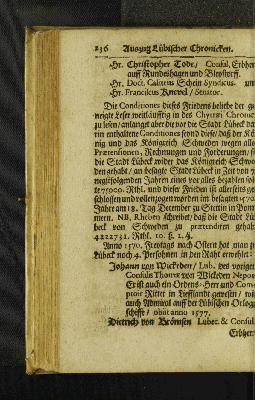 236 Auszug Lübischer Chronicken.
Hr. Christopher Tode, Consul, Erbherr
auff Rundeshagen und Bliestorff.
Hr. Doct. Calixtus Schein Syndicus.
Hr. Franciscus Knevel / Senator.
Die Conditiones dieses Friedens beliebe der ge-
neigte Leser weitläufftig in des Chytræi Chronic
zu lesen/ anlanget aber die vor die Stadt Lübeck dar-
ein enthaltene Conditiones sond diese/ daß der Kö-
nig und das Königreich Schweden wegen aller
Prætensionen, Rechnungen und Forderungen/ so
die Stadt Lübeck wider das Königreich Schwe-
den gehabt / an besagte Stadt Lübeck in Zeit von
negstfolgenden Jahren eines vor alles bezahlen solte
75000. Rthl. und dieser Frieden ist allerseits ge-
schlossen und vollenzogen worden im besagten 1570.
Jahr am 13. Tag December zu Stettin in Pom-
mern. NB. Rhebein schreibet/ daß die Stadt Lü-
beck von Schweden zu prætendiren gehabt
4222731. Rthl. 10. ß. 1. ₰.
Anno 1570. Freytags nach Ostern hat man zu
Lübeck noch 4. Persohnen in den Raht erwehlet:
Johann von Wickeden / Lub. des vorigen
Consulis Thomæ von Wickeden Nepos
Er ist auch ein Ordens-Herr und Com-
ptoir Ritter in Lieffland gewesen / wie
auch Admiral auff der Lübschen Orlog-
schiffe / obiit anno 1577.
Dieterich von Brömsen Lubec. & Consul.
Erbherr